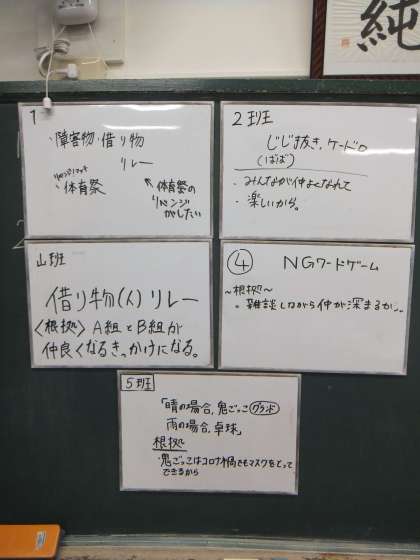 純
1
・障害物・借り物
リレー
リベンジマッチ
・体育祭
↖体育祭の
リベンジ
がしたい
2班
じじ抜き、ケードロ
(ばば)
・みんなが仲よくなれて
・楽しいから。
山班
借り物(人)リレー
〈根拠〉A組とB組が
仲良くなるきっかけになる。
④
NGワードゲーム
~根拠~
雑談しながら仲が深まるから。
5班
「晴の場合、鬼ごっこ グランド
雨の場合、卓球」
根拠
・鬼ごっこはコロナ禍でもマスクをとって
できるから